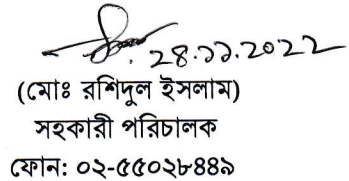 ২৪.১১.২০২২
(মোঃ রশিদুল ইসলাম)
সহকারী পরিচালক
ফোন: ০২-৫৫০২৮৪৪৯